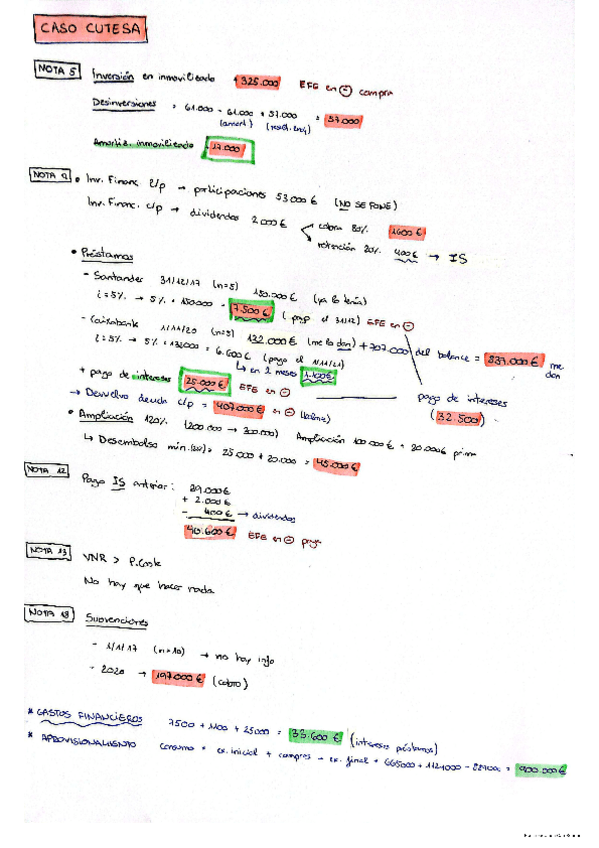 CASO CUTESA
NOTA 5 Inversión en inmovilizado 1325.000 EFE en ⊖ compra
Desinversiones = 61.000 - 61.000 + 37.000 = 37.000
(amort.)
Amortiz. inmovilizado 17.000
NOTA 9 • Inv. Financ. l/p → participaciones 53000 € (NO SE PONE)
Inv. Financ. c/p → dividendos 2.000 € cobra 80% 1600 €
retención 20% 400 € → IS
• Préstamos
- Santander 31/12/17 (n=5) 150.000 € (ya lo tenía)
i = 5% → 5% · 150000 = 7.500 € (pago el 31/12) EFE en ⊖
- Caixabank 1/11/20 (n=5) 132.000 € (me lo dan) + 707.000 del balance = 839.000 € me dan
i = 5% → 5% · 132000 = 6.600 € (pago el 1/11/21)
↳ en 2 meses 1.100 €
+ pago de intereses 25.000 € EFE en ⊖ pago de intereses
(32.500)
→ Devuelvo deuda c/p = 407.000 € en ⊖
• Ampliación 120% (200.000 → 300.000) Ampliación 100.000 € + 20.000 € prima
↳ Desembolso mín. (25%) = 25.000 + 20.000 = 45.000 €
NOTA 12 Pago IS anterior: 39.000 €
+ 2.000 €
- 400 € → dividendos
40.600 € EFE en ⊖ pago
NOTA 13 VNR > P.Coste
No hay que hacer nada
NOTA 18 Subvenciones
- 1/1/17 (n=10) → no hay info
- 2020 → 197.000 € (cobro)
* GASTOS FINANCIEROS 7500 + 1100 + 25000 = 33.600 € (intereses préstamos)
* APROVISIONAMIENTO Consumo = ex. inicial + compras - ex. final = 665000 + 1124000 - 889000 = 900.000 €